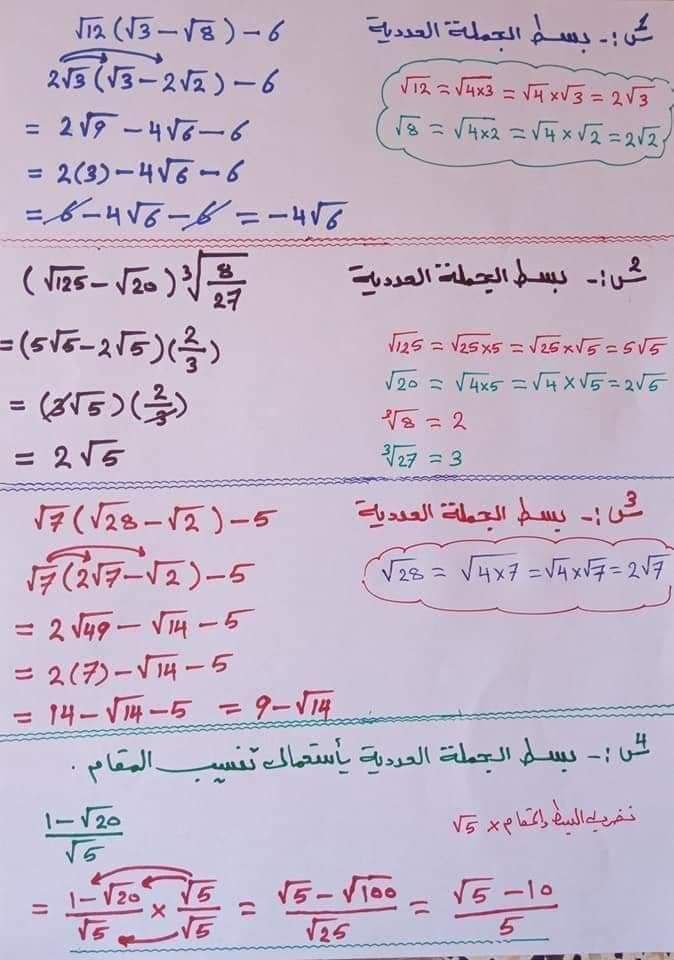 س1:- بسط الجملة العددية
√12 (√3 − √8) − 6
2√3 (√3 − 2√2) − 6
= 2√9 − 4√6 − 6
= 2(3) − 4√6 − 6
= 6 − 4√6 − 6 = −4√6
√12 = √4×3 = √4 × √3 = 2√3
√8 = √4×2 = √4 × √2 = 2√2
س2:- بسط الجملة العددية
(√125 − √20) ∛8/27
= (5√5 − 2√5)(2/3)
= (3√5)(2/3)
= 2√5
√125 = √25×5 = √25 × √5 = 5√5
√20 = √4×5 = √4 × √5 = 2√5
∛8 = 2
∛27 = 3
س3:- بسط الجملة العددية
√7 (√28 − √2) − 5
√7 (2√7 − √2) − 5
= 2√49 − √14 − 5
= 2(7) − √14 − 5
= 14 − √14 − 5 = 9 − √14
√28 = √4×7 = √4 × √7 = 2√7
س4:- بسط الجملة العددية بأستعمال تنسيب المقام .
نضرب البسط والمقام × √5
1 − √20 / √5
= 1 − √20 / √5 × √5 / √5 = √5 − √100 / √25 = √5 − 10 / 5